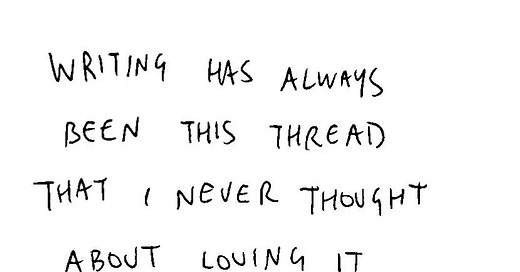 WRITING HAS ALWAYS
BEEN THIS THREAD
THAT I NEVER THOUGHT
ABOUT LOVING IT